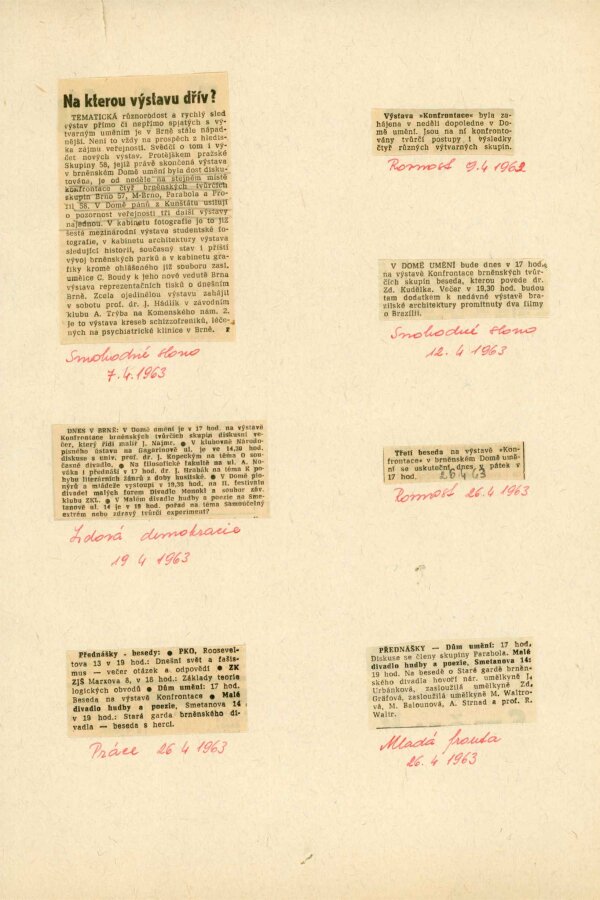 Na kterou výstavu dřív?
TEMATICKÁ různorodost a rychlý sled
výstav přímo či nepřímo spjatých s vý-
tvarným uměním je v Brně stále nápad-
nější. Není to vždy na prospěch z hledis-
ka zájmu veřejnosti. Svědčí o tom i vý-
čet nových výstav. Protějškem pražské
Skupiny 58, jejíž právě skončená výstava
v brněnském Domě umění byla dost disku-
tována, je od neděle na stejném místě
konfrontace čtyř brněnských tvůrčích
skupin Brno 57, M-Brno, Parabola a Pro-
fil 58. V Domě pánů z Kunštátu usilují
o pozornost veřejnosti tři další výstavy
najednou. V kabinetu fotografie je to již
šestá mezinárodní výstava studentské fo-
tografie, v kabinetu architektury výstava
sledující historii, současný stav i příští
vývoj brněnských parků a v kabinetu gra-
fiky kromě ohlášeného již souboru zasl.
umělce C. Boudy k jeho nové vedutě Brna
výstava reprezentačních tisků o dnešním
Brně. Zcela ojedinělou výstavu zahájil
v sobotu prof. dr. J. Hádlík v závodním
klubu A. Trýba na Komenského nám. 2.
Je to výstava kreseb schizofreniků, léče-
ných na psychiatrické klinice v Brně. r
Svobodné slovo
7.4.1963
Výstava »Konfrontace« byla za-
hájena v neděli dopoledne v Do-
mě umění. Jsou na ní konfronto-
vány tvůrčí postupy i výsledky
čtyř různých výtvarných skupin.
Rovnost 9.4 1962
V DOMĚ UMĚNÍ bude dnes v 17 hod.
na výstavě Konfrontace brněnských tvůr-
čích skupin beseda, kterou povede dr.
Zd. Kudělka. Večer v 19,30 hod. budou
tam dodatkem k nedávné výstavě bra-
zilské architektury promítnuty dva filmy
o Brazílii.
Svobodné slovo
12. 4 1963
DNES V BRNĚ: V Domě umění je v 17 hod. na výstavě
Konfrontace brněnských tvůrčích skupin diskusní ve-
čer, který řídí malíř J. Najmr. ● V klubovně Národo-
pisného ústavu na Gagarinově ul. je ve 14,30 hod.
diskuse s univ. prof. dr. J. Kopeckým na téma O sou-
časné divadlo. ● Na filosofické fakultě na ul. A. No-
váka 1 přednáší v 17 hod. dr. J. Hrabák na téma K po-
hybu literárních žánrů z doby husitské. ● V Domě pio-
nýrů a mládeže vystoupí v 19,30 hod. na II. festivalu
divadel malých forem Divadlo Monokl a soubor záv.
klubu ZKL. ● V Malém divadle hudby a poezie na Sme-
tanově ul. 14 je v 19 hod. pořad na téma Samoúčelný
extrém nebo zdravý tvůrčí experiment?
Lidová demokracie
19 4 1963
Třetí beseda na výstavě »Kon-
frontace« v brněnském Domě umě-
ní se uskuteční dnes v pátek v
17 hod. 26 4 63
Rovnost 26.4 1963
Přednášky - besedy: ● PKO, Roosevel-
tova 13 v 19 hod.: Dnešní svět a fašis-
mus — večer otázek a odpovědí ● ZK
ZJŠ Marxova 8, v 18 hod.: Základy teorie
logických obvodů ● Dům umění: 17 hod.
Beseda na výstavě Konfrontace ● Malé
divadlo hudby a poezie, Smetanova 14
v 19 hod.: Stará garda brněnského di-
vadla — beseda s herci.
Práce 26 4 1963
PŘEDNÁŠKY — Dům umění: 17 hod.
Diskuse se členy skupiny Parabola. Malé
divadlo hudby a poezie, Smetanova 14:
19 hod. Na besedě o Staré gardě brněn-
ského divadla hovoří nár. umělkyně J.
Urbánková, zasloužilá umělkyně Zd.
Gráfová, zasloužilá umělkyně M. Waltro-
vá, M. Balounová, A. Strnad a prof. R.
Waltr.
Mladá fronta
26. 4 1963